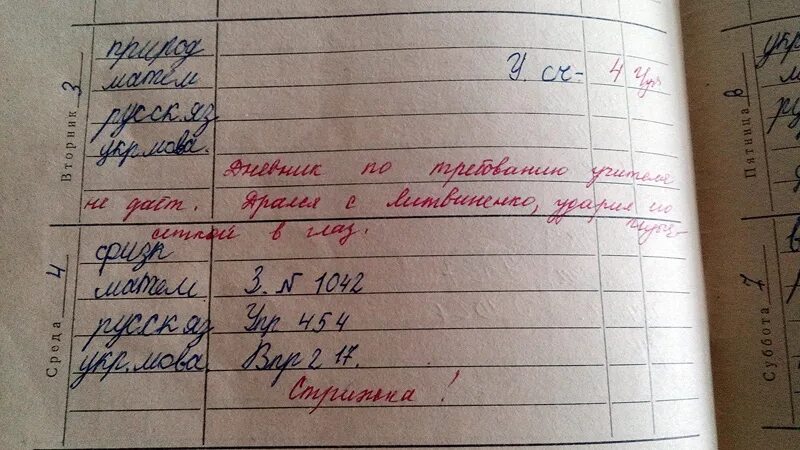 Вторник 3
природ
матем У. сч- 4
русск.яз
укр.мова.
Дневник по требованию учителя
не даёт. Дрался с Литвиненко, ударил его
в глаз.
Среда 4
физк
матем. З. № 1042
русск яз Упр 454
укр.мова. Впр 217.
Стрижка!
Пятница 8
укр
м
ру
Суббота 7